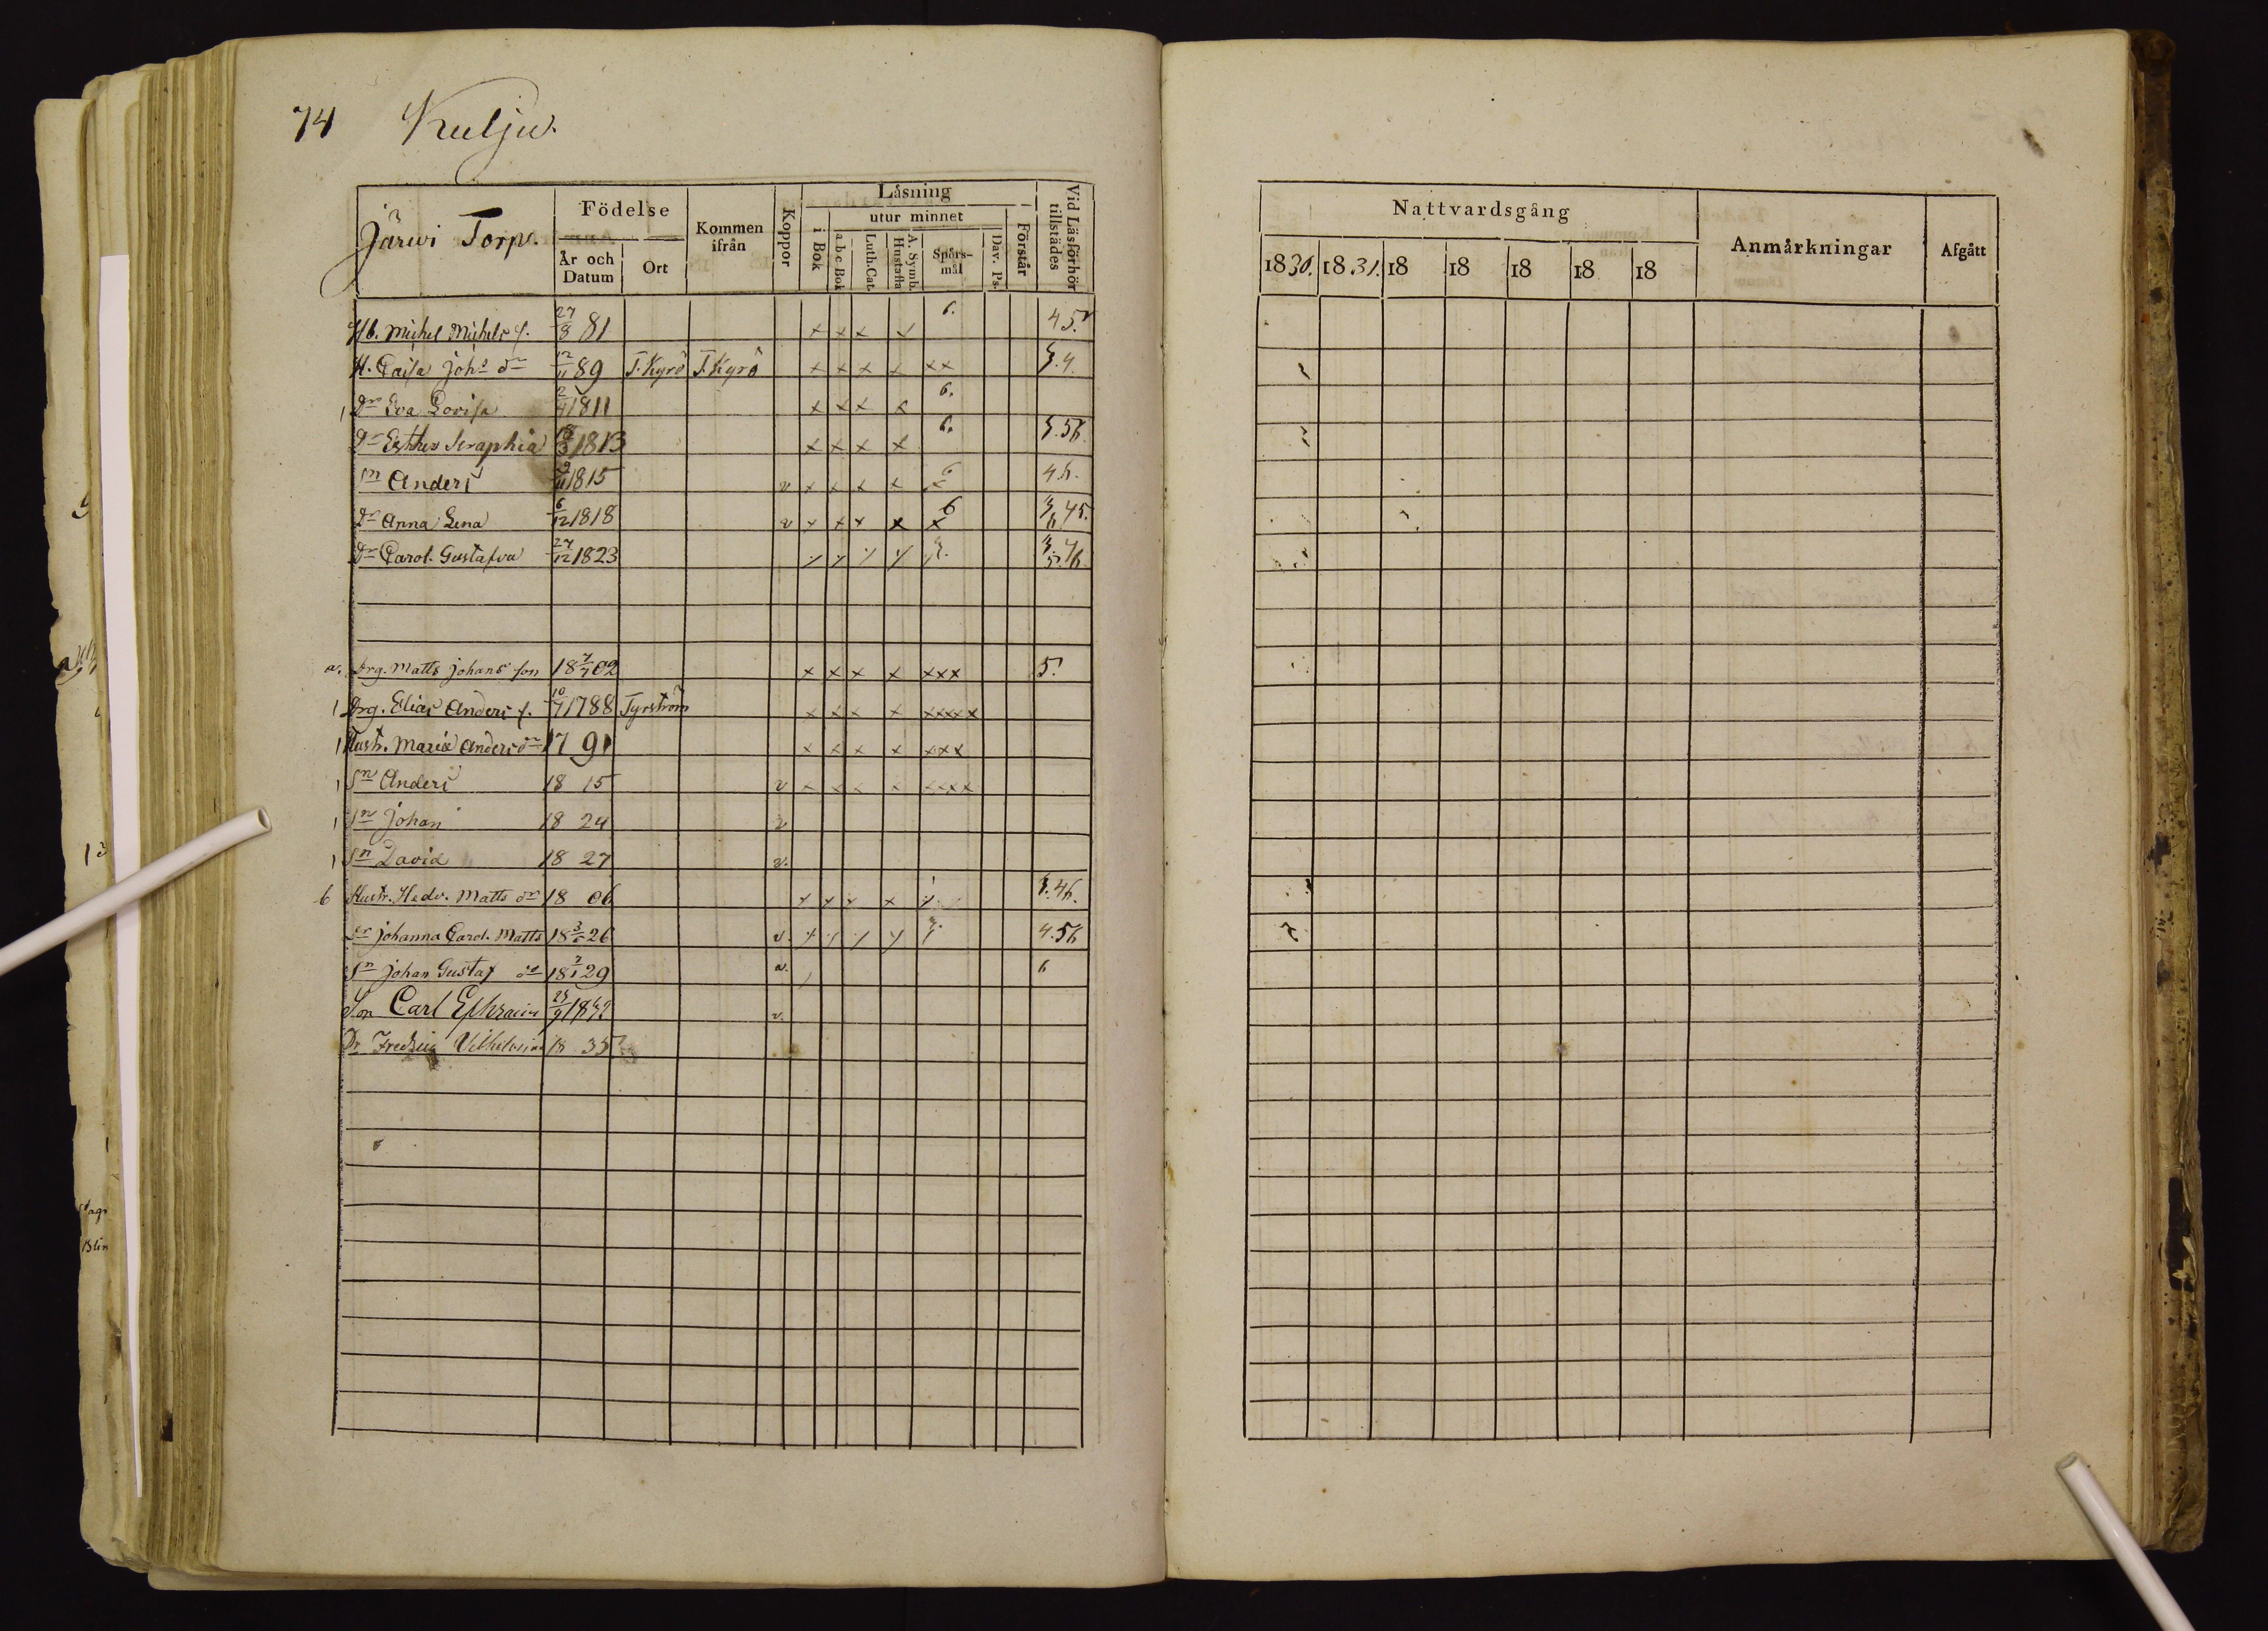 74 Kulju.
Järvi Torp.
Födelse
År och Datum
Ort
Kommen ifrån
Koppor
Låsning
i Bok
utur minnet
a b c Bok
Luth. Cat.
A. Symb. Hustafla
Spörs-mål
Dav. Ps.
Förstår
Vid Läsförhör tillstädes
Hb. Michel Michels s. 27/8 81 x x x x 6. 45.
H. Caisa Johs dr 12/11 89 T. Kyrö T. Kyrö x x x x xx 3.4.
1 Dr Eva Lovisa 1811 x x x x 6.
Dr Esther Seraphia 1813 x x x x 6. 3.56.
Sn Anders 1815 v x x x x 6 4.6.
Dr Anna Lena 6/12 1818 v x x x x x 6 3 45. 6
Dr Carol. Gustafva 27/12 1823 3. 3. 46. 5.
a. Drg. Matts Johans son 18 7/7 02 x x x x xxx 5.
1 Drg. Elias Anders s. 10/7 1788 Tyrström x x x x xxxxx
1 Hustr. Maria Anders dr 17 91 x x x x xxx
1 Sn Anders 18 15 v x x x x xxxx
1 Sn Johan 18 24 v
1 Sn David 18 27 v.
b Hustr. Hedv. Matts dr 18 06 3.46.
Dr Johanna Carol. Matts 18 26 v. 3. 4.56
Sn Johan Gustaf 18 29 v. 6
Son Carl Ephraim v.
Dr Fredrica Vilhelmina 18 35
Nattvardsgång
1830. 1831. 18 18 18 18 18
Anmärkningar
Afgått